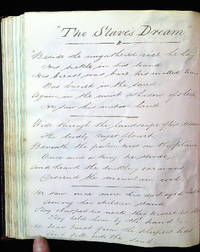 "The Slave's Dream"
"Beside the ungathered rice he lay
His sickle in his hand
His breast was bare his matted hair
Was buried in the sand
Again in the mist and shadow of sleep
He saw his native land
Wide through the landscape of his dreams
The lordly Niger flowed
Beneath the palm trees on the plain
Once more a king he strode
And heard the tinkling caravans
Descend the mountain road
He saw once more his dark eyed queen
Among her children stand
They clasped his neck they kissed his cheeks
They held him by the hand
A tear burst from the sleepers lids
And fell into the sand